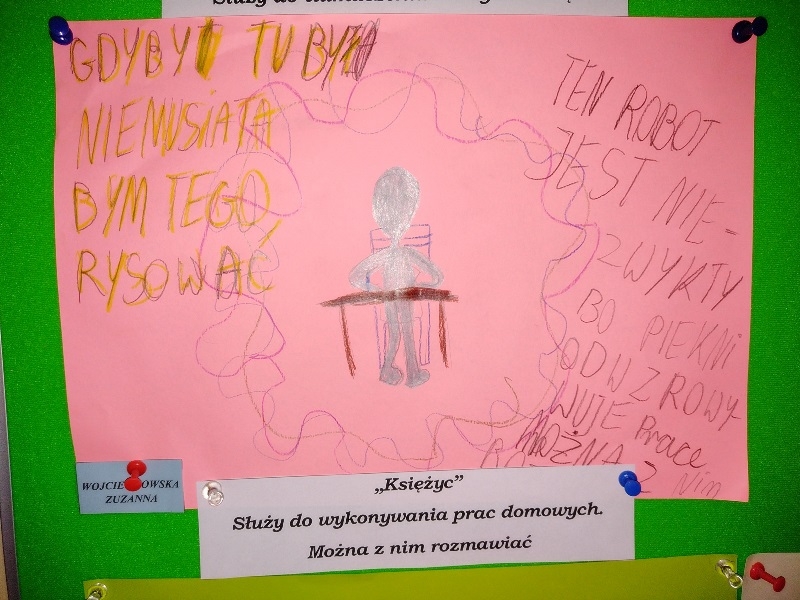 GDYBY TU BYŁ
NIEMUSIAŁA
BYM TEGO
RYSOWAĆ
TEN ROBOT
JEST NIE-
ZWYKŁY
BO PIEKNI
ODWZROWY-
WUJE Prace
MOŻNA Z
Nim
ZUZANNA
„Księżyc”
Służy do wykonywania prac domowych.
Można z nim rozmawiać